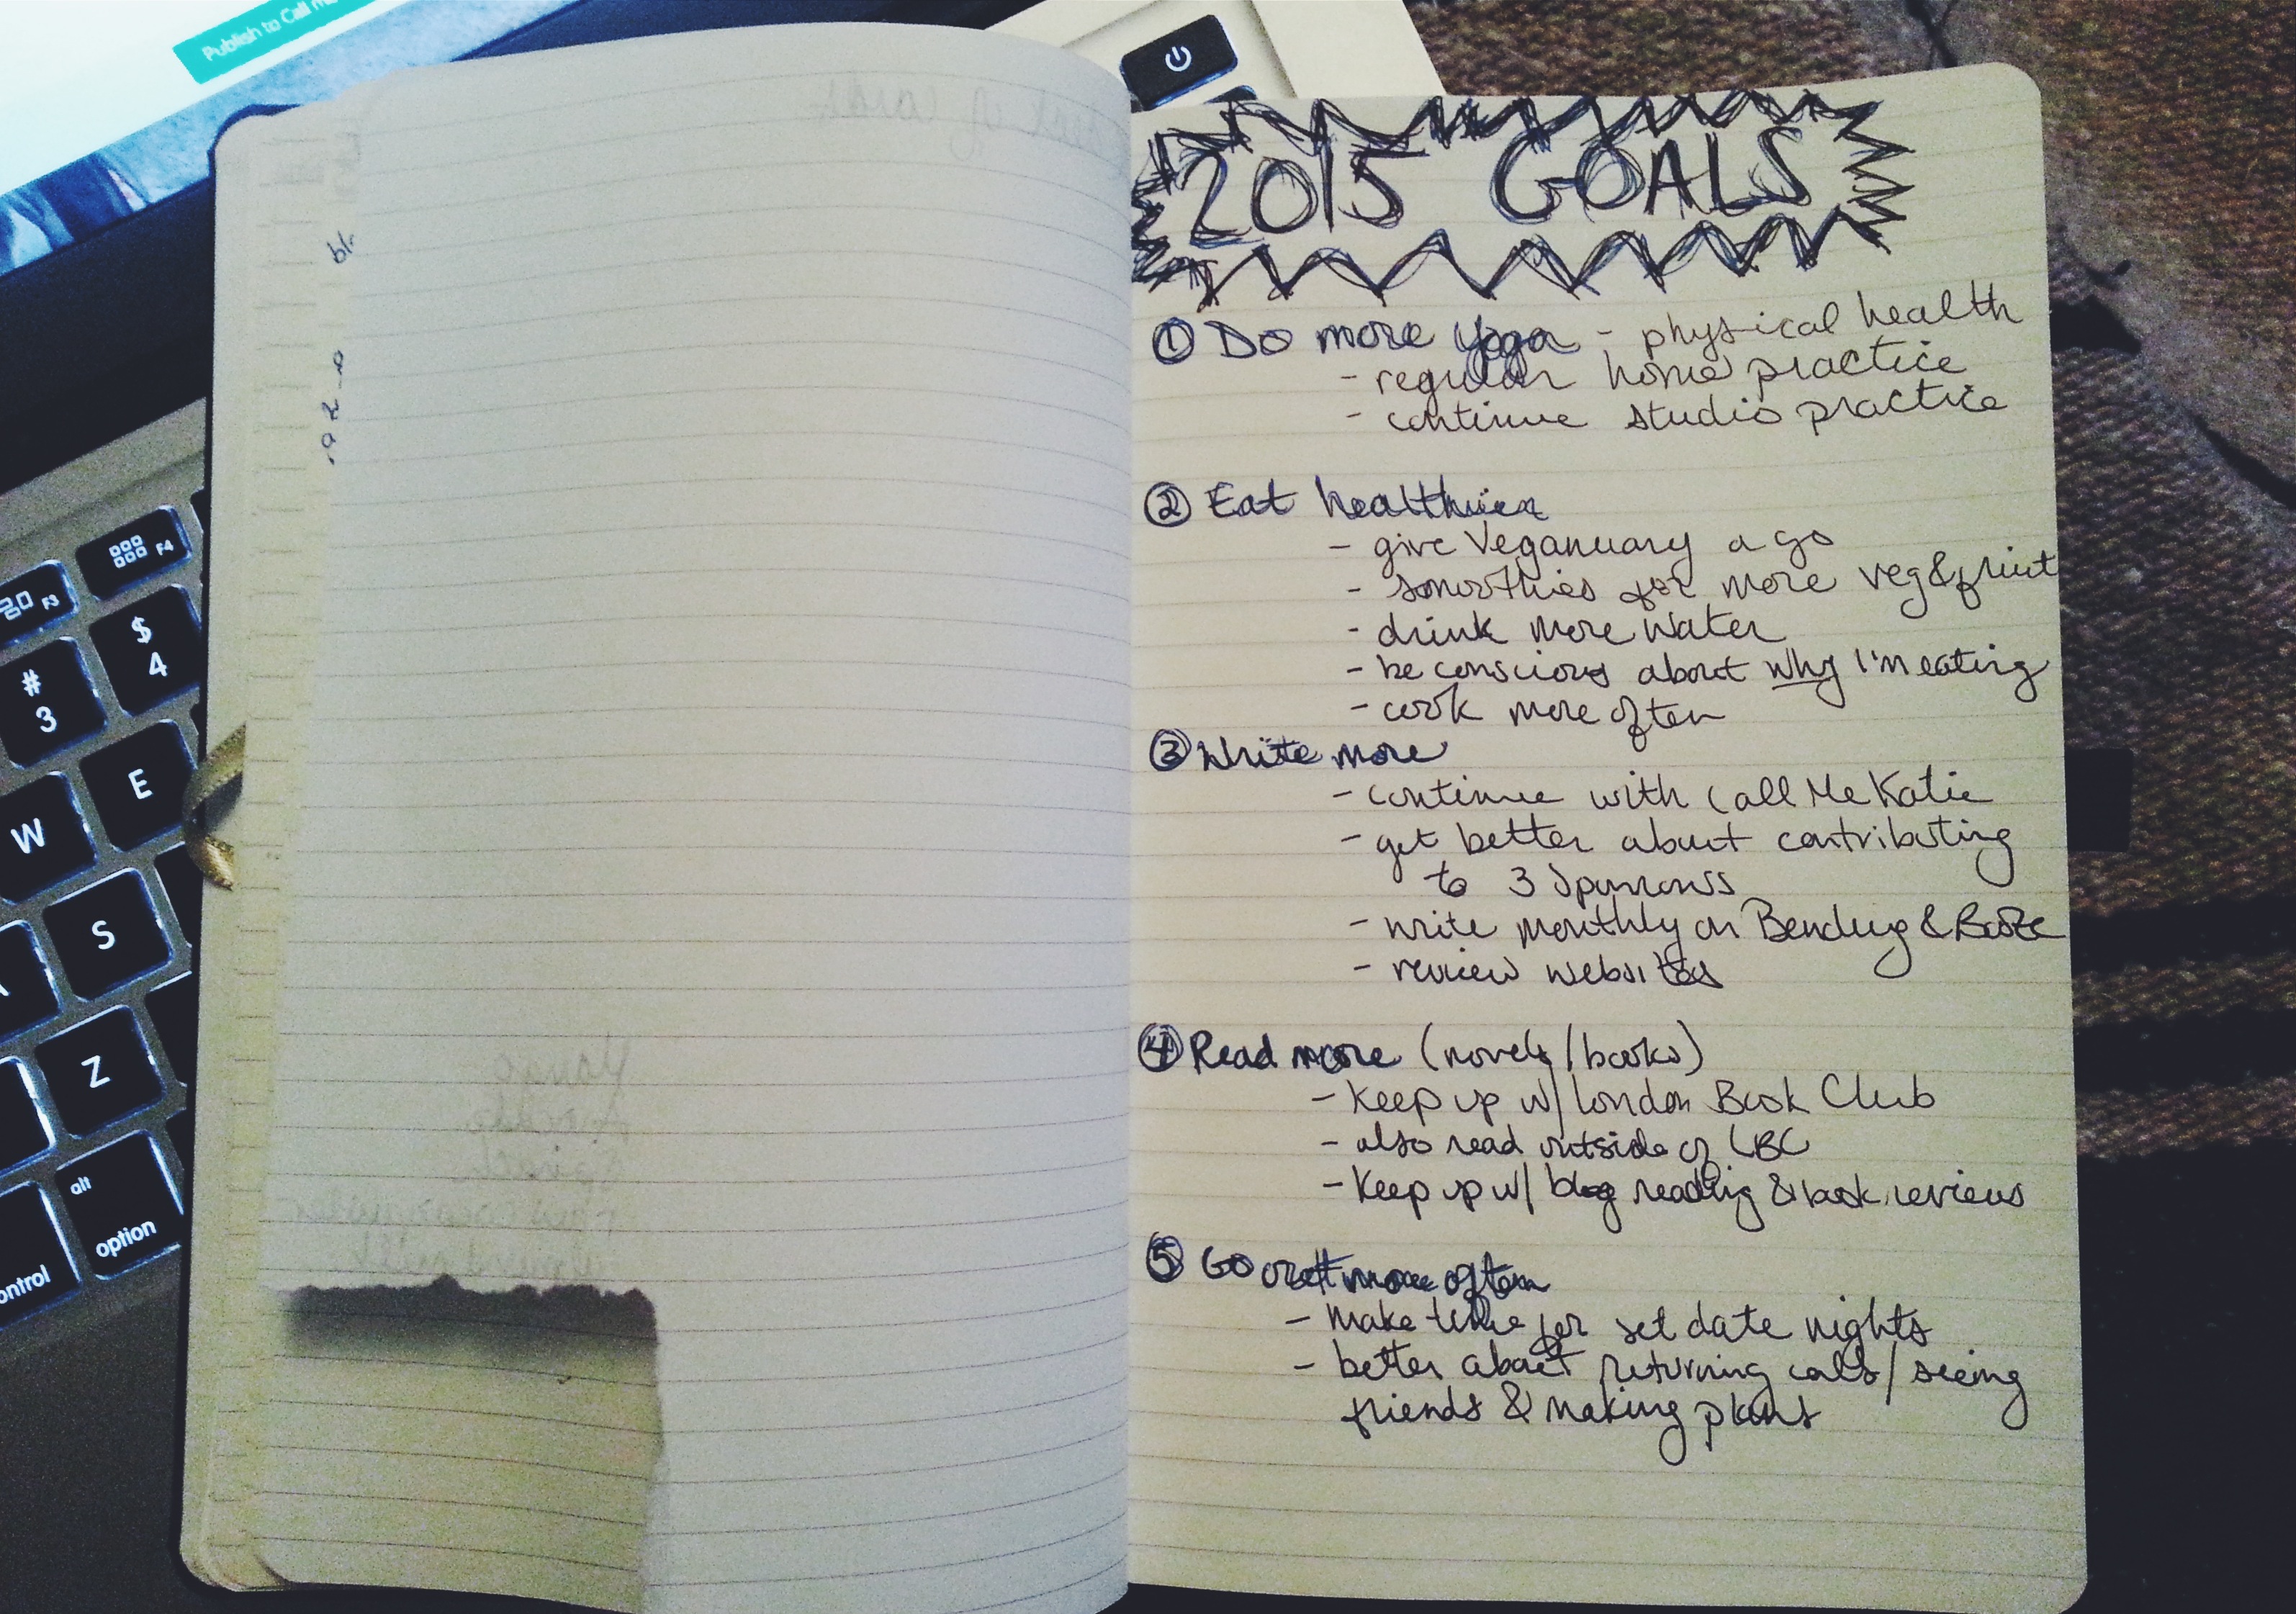 Publish to Call
2015 GOALS
① Do more yoga - physical health
- regular home practice
- continue studio practice
② Eat healthier
- give Veganuary a go
- smoothies for more veg & fruit
- drink more water
- be conscious about why I'm eating
- cook more often
③ Write more
- continue with Call Me Katie
- get better about contributing
to 3 Sparrows
- write monthly on Bending & Booze
- review websites
④ Read more (novels/books)
- Keep up w/ London Book Club
- also read outside of LBC
- Keep up w/ blog reading & book reviews
⑤ Go out more often
- make time for set date nights
- better about returning calls/seeing
friends & making plans
F4
F3
$
4
#
3
E
W
S
Z
alt
option
control
deck of cards
Mango
Spinach
almond milk